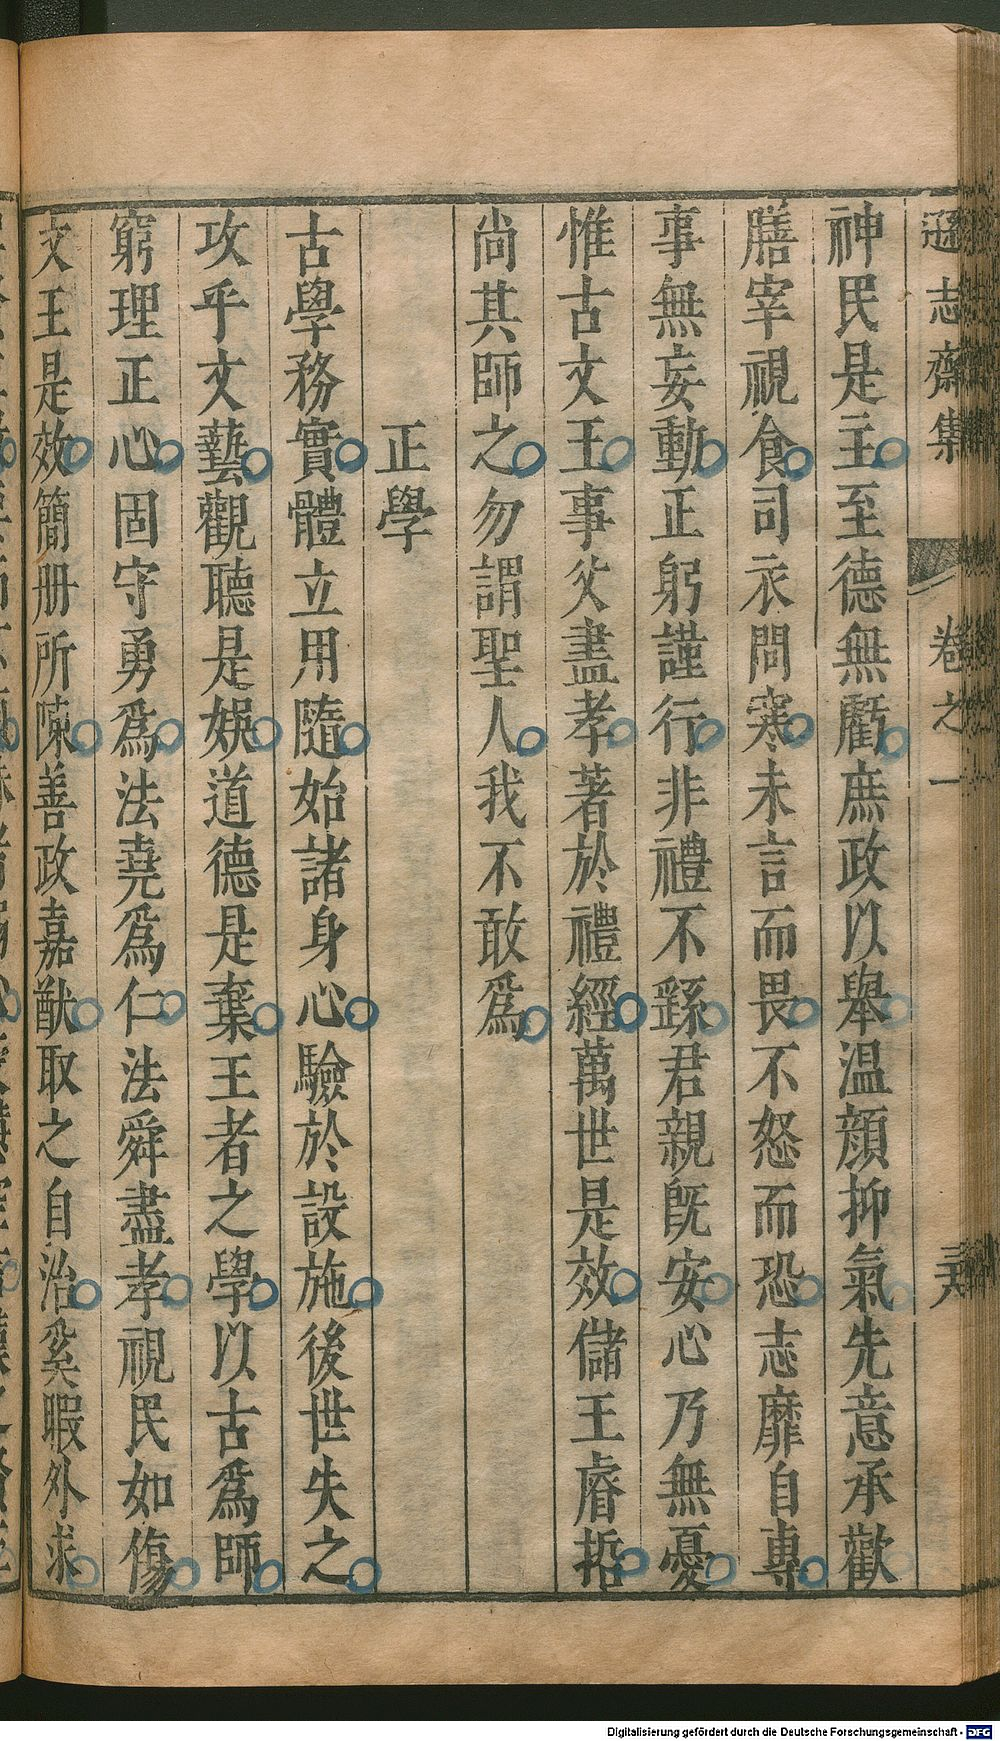 遜志齋集 卷之一
神民是主至德無虧庶政以舉温顔抑氣先意承歡
膳宰視食司衣問寒未言而畏不怒而恐志靡自專
事無妄動正躬謹行非禮不繇君親既安心乃無憂
惟古文王事父盡孝著於禮經萬世是效儲王睿哲
尚其師之勿謂聖人我不敢爲
正學
古學務實體立用隨始諸身心驗於設施後世失之
攻乎文藝觀聽是娛道德是棄王者之學以古爲師
窮理正心固守勇爲法堯爲仁法舜盡孝視民如傷
文王是效簡册所陳善政嘉猷取之自治奚暇外求
Digitalisierung gefördert durch die Deutsche Forschungsgemeinschaft - DFG